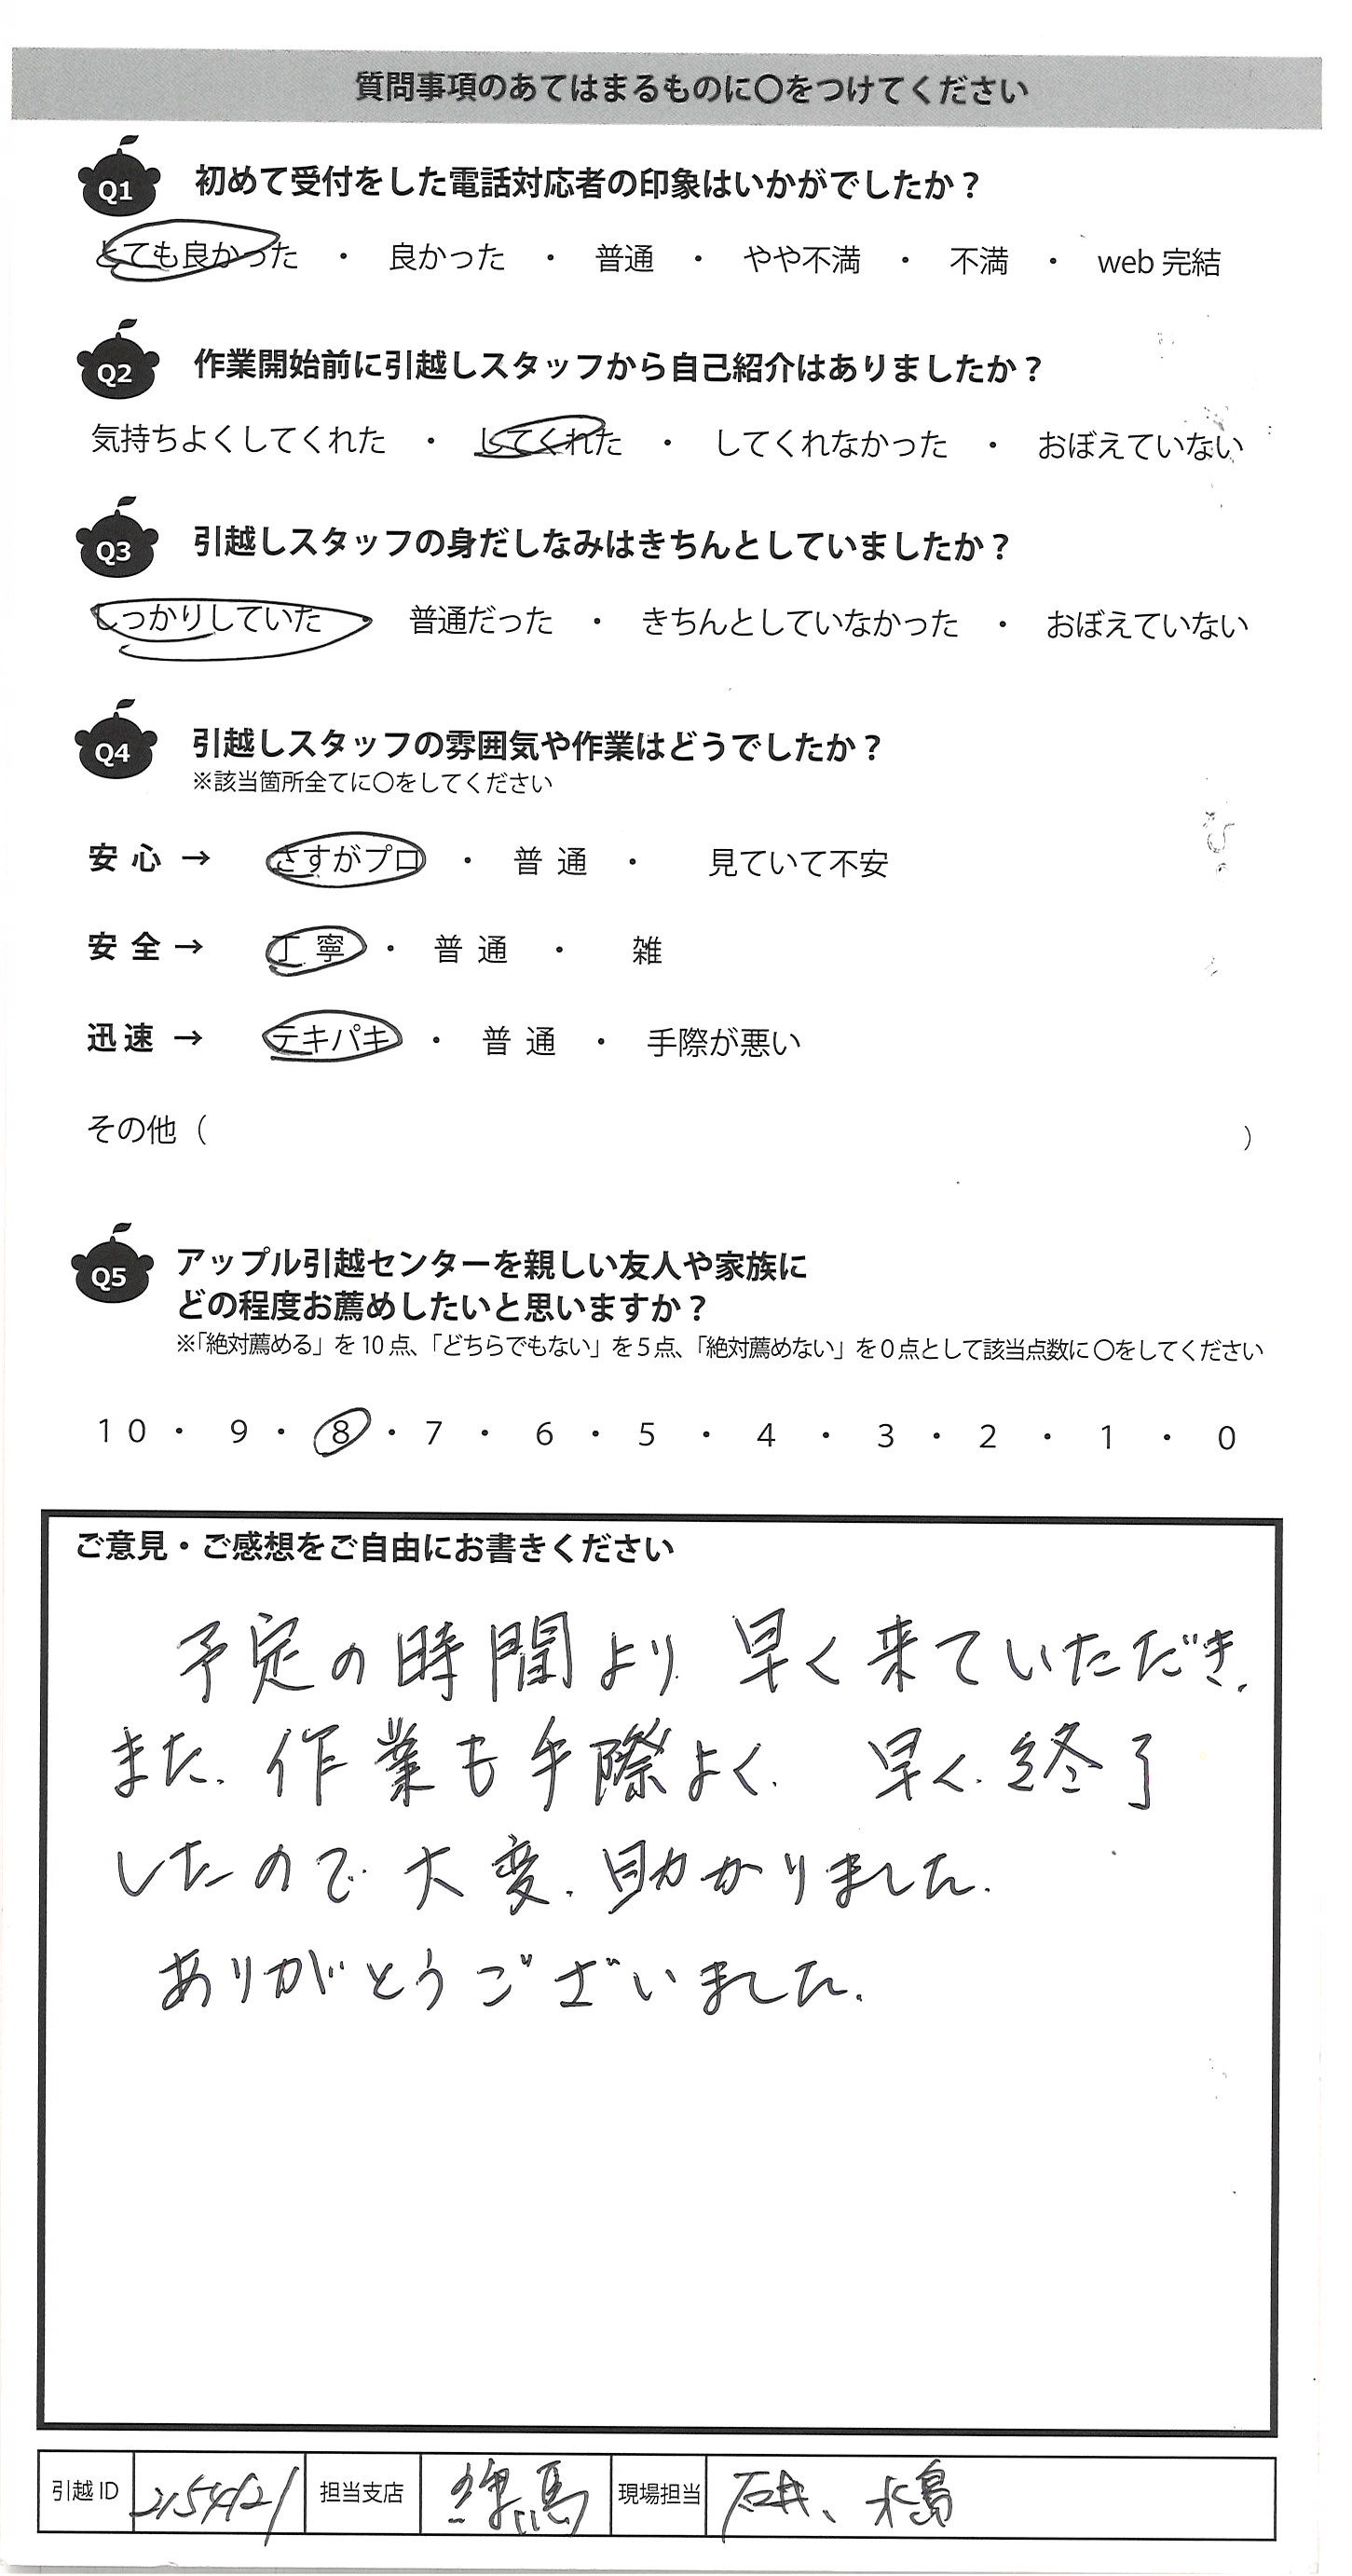 質問事項のあてはまるものに〇をつけてください
Q1 初めて受付をした電話対応者の印象はいかがでしたか？
とても良かった ・ 良かった ・ 普通 ・ やや不満 ・ 不満 ・ web 完結
Q2 作業開始前に引越しスタッフから自己紹介はありましたか？
気持ちよくしてくれた ・ してくれた ・ してくれなかった ・ おぼえていない
Q3 引越しスタッフの身だしなみはきちんとしていましたか？
しっかりしていた 普通だった ・ きちんとしていなかった ・ おぼえていない
Q4 引越しスタッフの雰囲気や作業はどうでしたか？
※該当箇所全てに〇をしてください
安心 → さすがプロ ・ 普通 ・ 見ていて不安
安全 → 丁寧 ・ 普通 ・ 雑
迅速 → テキパキ ・ 普通 ・ 手際が悪い
その他（ ）
Q5 アップル引越センターを親しい友人や家族に
どの程度お薦めしたいと思いますか？
※「絶対薦める」を 10 点、「どちらでもない」を 5 点、「絶対薦めない」を 0 点として該当点数に 〇をしてください
10 ・ 9 ・ 8 ・ 7 ・ 6 ・ 5 ・ 4 ・ 3 ・ 2 ・ 1 ・ 0
ご意見・ご感想をご自由にお書きください
予定の時間より 早く来ていただき、
また、作業も手際よく、早く、終了
したので 大変、助かりました。
ありがとうございました。
引越 ID 担当支店 練馬 現場担当